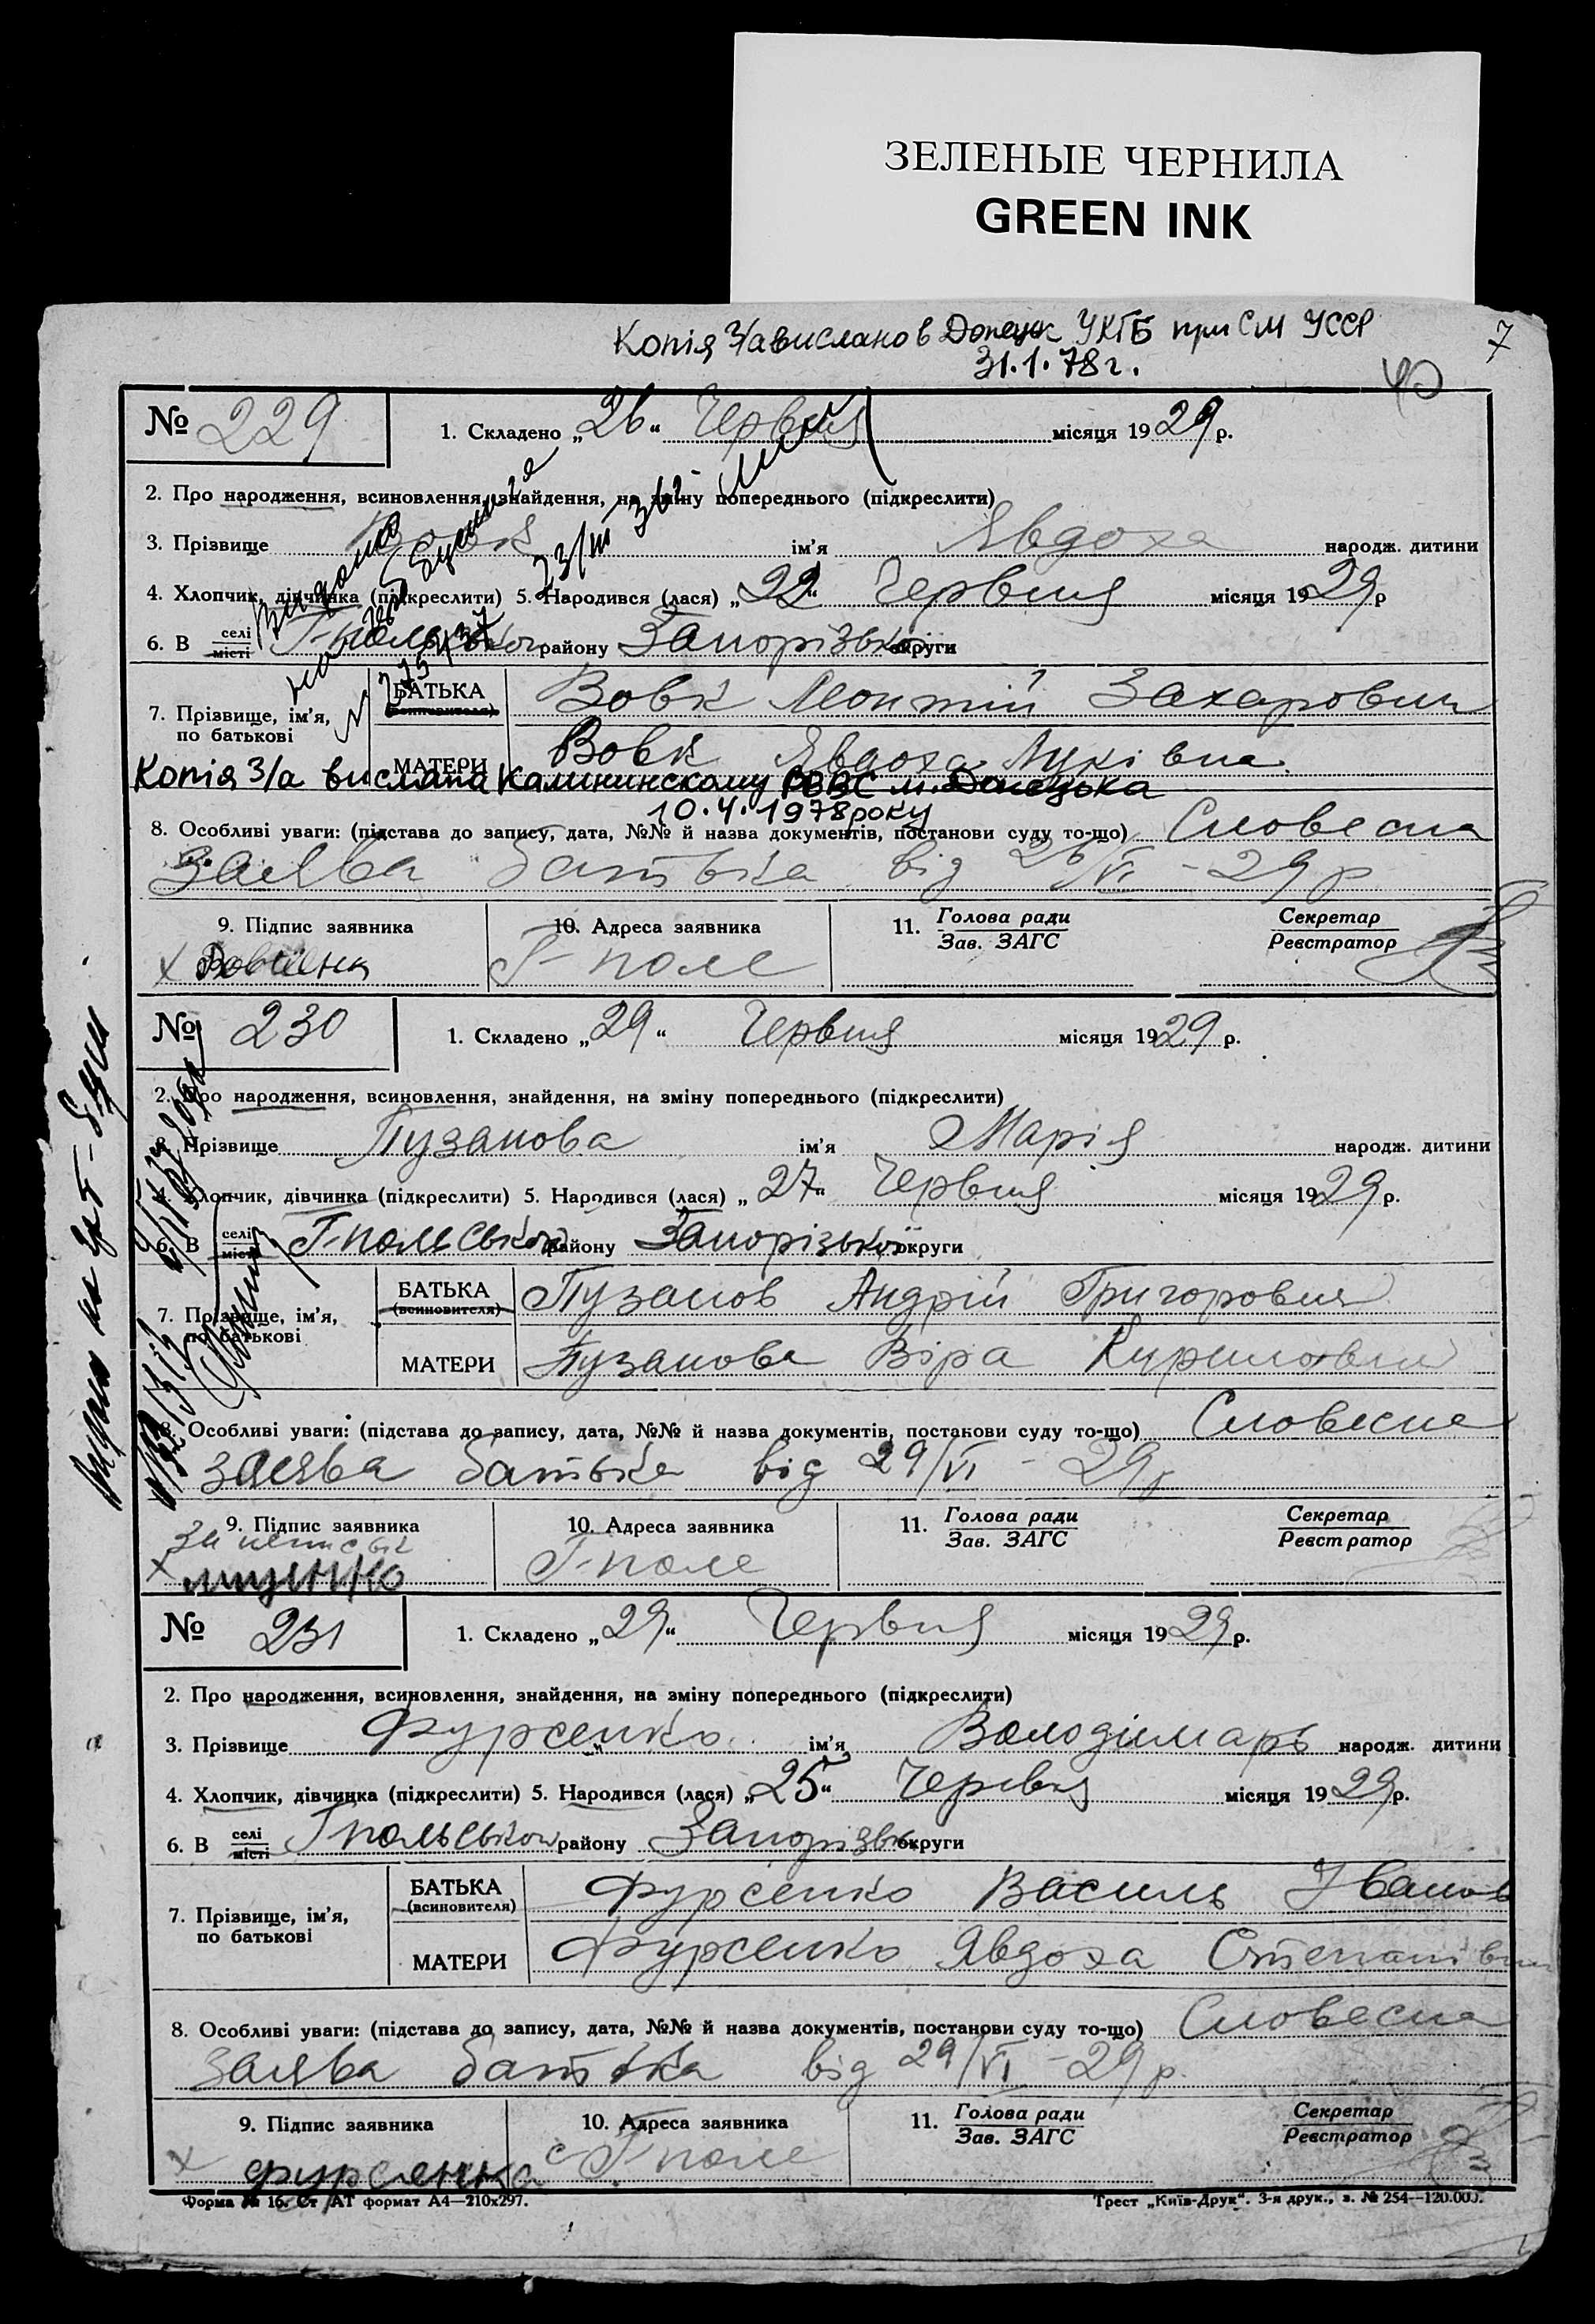 ЗЕЛЕНЫЕ ЧЕРНИЛА
GREEN INK
Копія З/а вислано в Донецк УКГБ при СМ УССР
31.1.78 г.
7
40
№ 229
1. Складено „26“ Червня місяця 1929 р.
2. Про народження, всиновлення, знайдення, на зміну попереднього (підкреслити)
3. Прізвище Вовк ім'я Явдоха народж. дитини
4. Хлопчик, дівчинка (підкреслити) 5. Народився (лася) „22“ Червня місяця 1929 р
6. В селі місті Г-польського району Запорізької округи
7. Прізвище, ім'я, по батькові
БАТЬКА (всиновителя) Вовк Леонтій Захарович
МАТЕРИ Вовк Явдоха Луківна
Копія З/а вислана Калининскому РВВС м. Донецька
10.4.1978 року
8. Особливі уваги: (підстава до запису, дата, №№ й назва документів, постанови суду то-що) Словесна
заява батька від 26/VI - 29 р
9. Підпис заявника
10. Адреса заявника
11. Голова ради Зав. ЗАГС
Секретар Реєстратор
Г-поле
№ 230
1. Складено „29“ Червня місяця 1929 р.
2. Про народження, всиновлення, знайдення, на зміну попереднього (підкреслити)
3. Прізвище Пузанова ім'я Марія народж. дитини
4. Хлопчик, дівчинка (підкреслити) 5. Народився (лася) „27“ Червня місяця 1929 р.
6. В селі місті Г-польського району Запорізької округи
7. Прізвище, ім'я, по батькові
БАТЬКА (всиновителя) Пузанов Андрій Григорович
МАТЕРИ Пузанова Віра Кириловна
8. Особливі уваги: (підстава до запису, дата, №№ й назва документів, постанови суду то-що) Словесна
заява батька від 29/VI - 29 р
9. Підпис заявника
10. Адреса заявника
11. Голова ради Зав. ЗАГС
Секретар Реєстратор
Г-поле
№ 231
1. Складено „29“ Червня місяця 1929 р.
2. Про народження, всиновлення, знайдення, на зміну попереднього (підкреслити)
3. Прізвище Фурсенко ім'я Володимарь народж. дитини
4. Хлопчик, дівчинка (підкреслити) 5. Народився (лася) „25“ Червня місяця 1929 р.
6. В селі місті Гпольського району Запорізьк округи
7. Прізвище, ім'я, по батькові
БАТЬКА (всиновителя) Фурсенко Василь Іванов
МАТЕРИ Фурсенко Явдоха Степанівн
8. Особливі уваги: (підстава до запису, дата, №№ й назва документів, постанови суду то-що) Словесна
заява батька від 29/VI - 29 р.
9. Підпис заявника
10. Адреса заявника
11. Голова ради Зав. ЗАГС
Секретар Реєстратор
х фурсенка
с Г-поле
Форма № 16. Ст АТ формат А4—210х297.
Трест „Київ-Друк“. 3-я друк., з. № 254—120.000.